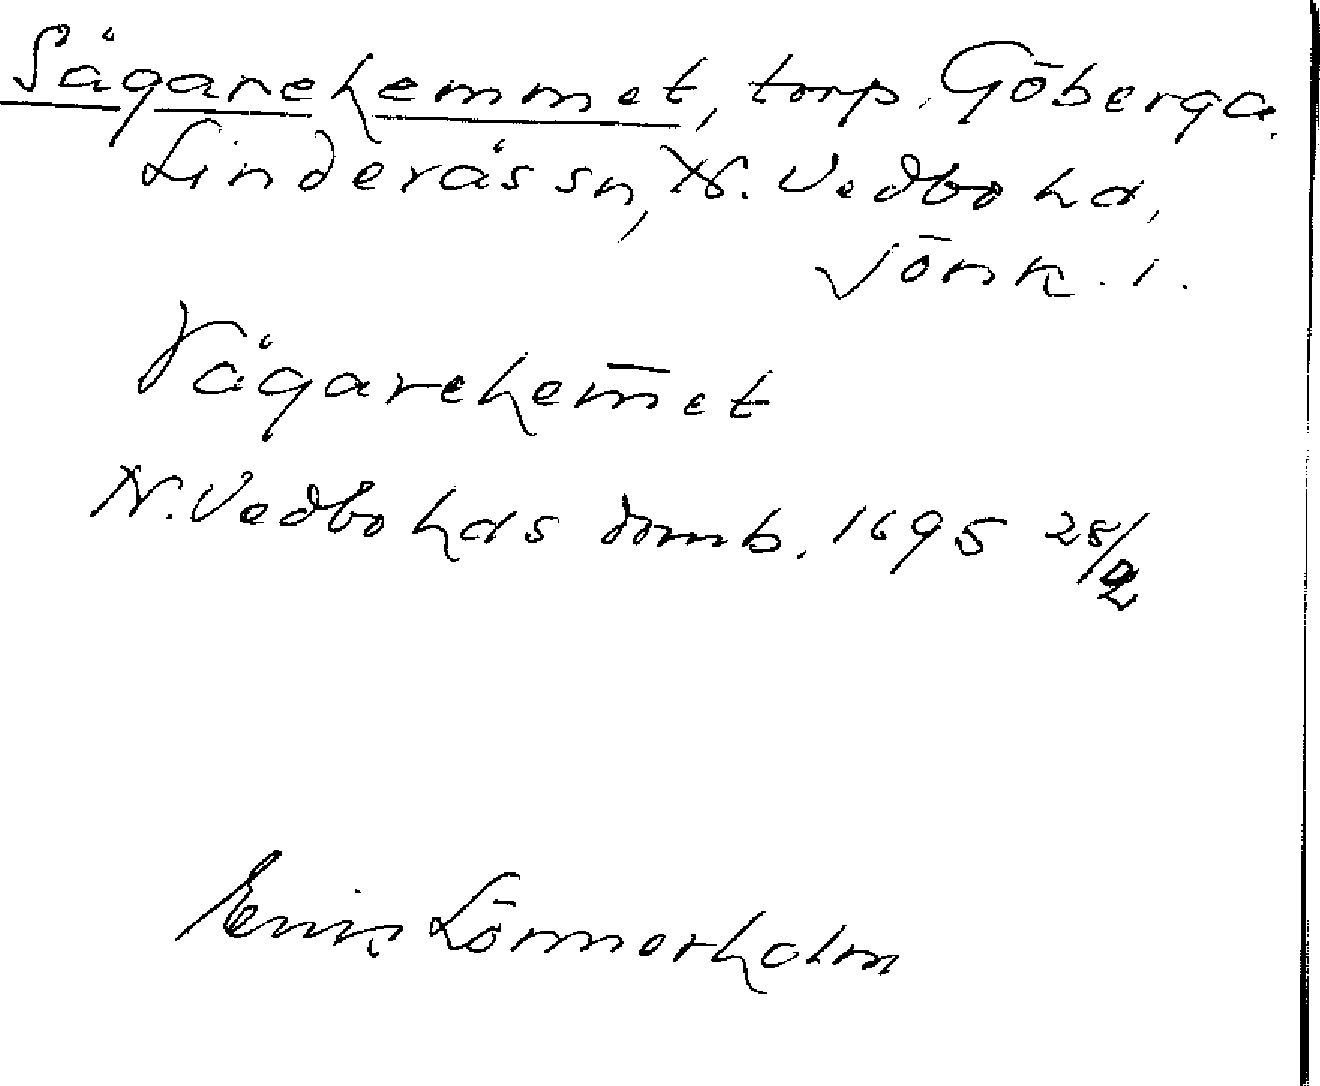 Sågarehemmet, torp. Göberga.
Linderås sn, N. Vedbo hd,
Jönk. l.
Vågarehem̄et
N. Vedbo hds domb. 1695 28/2
Lönnerholm